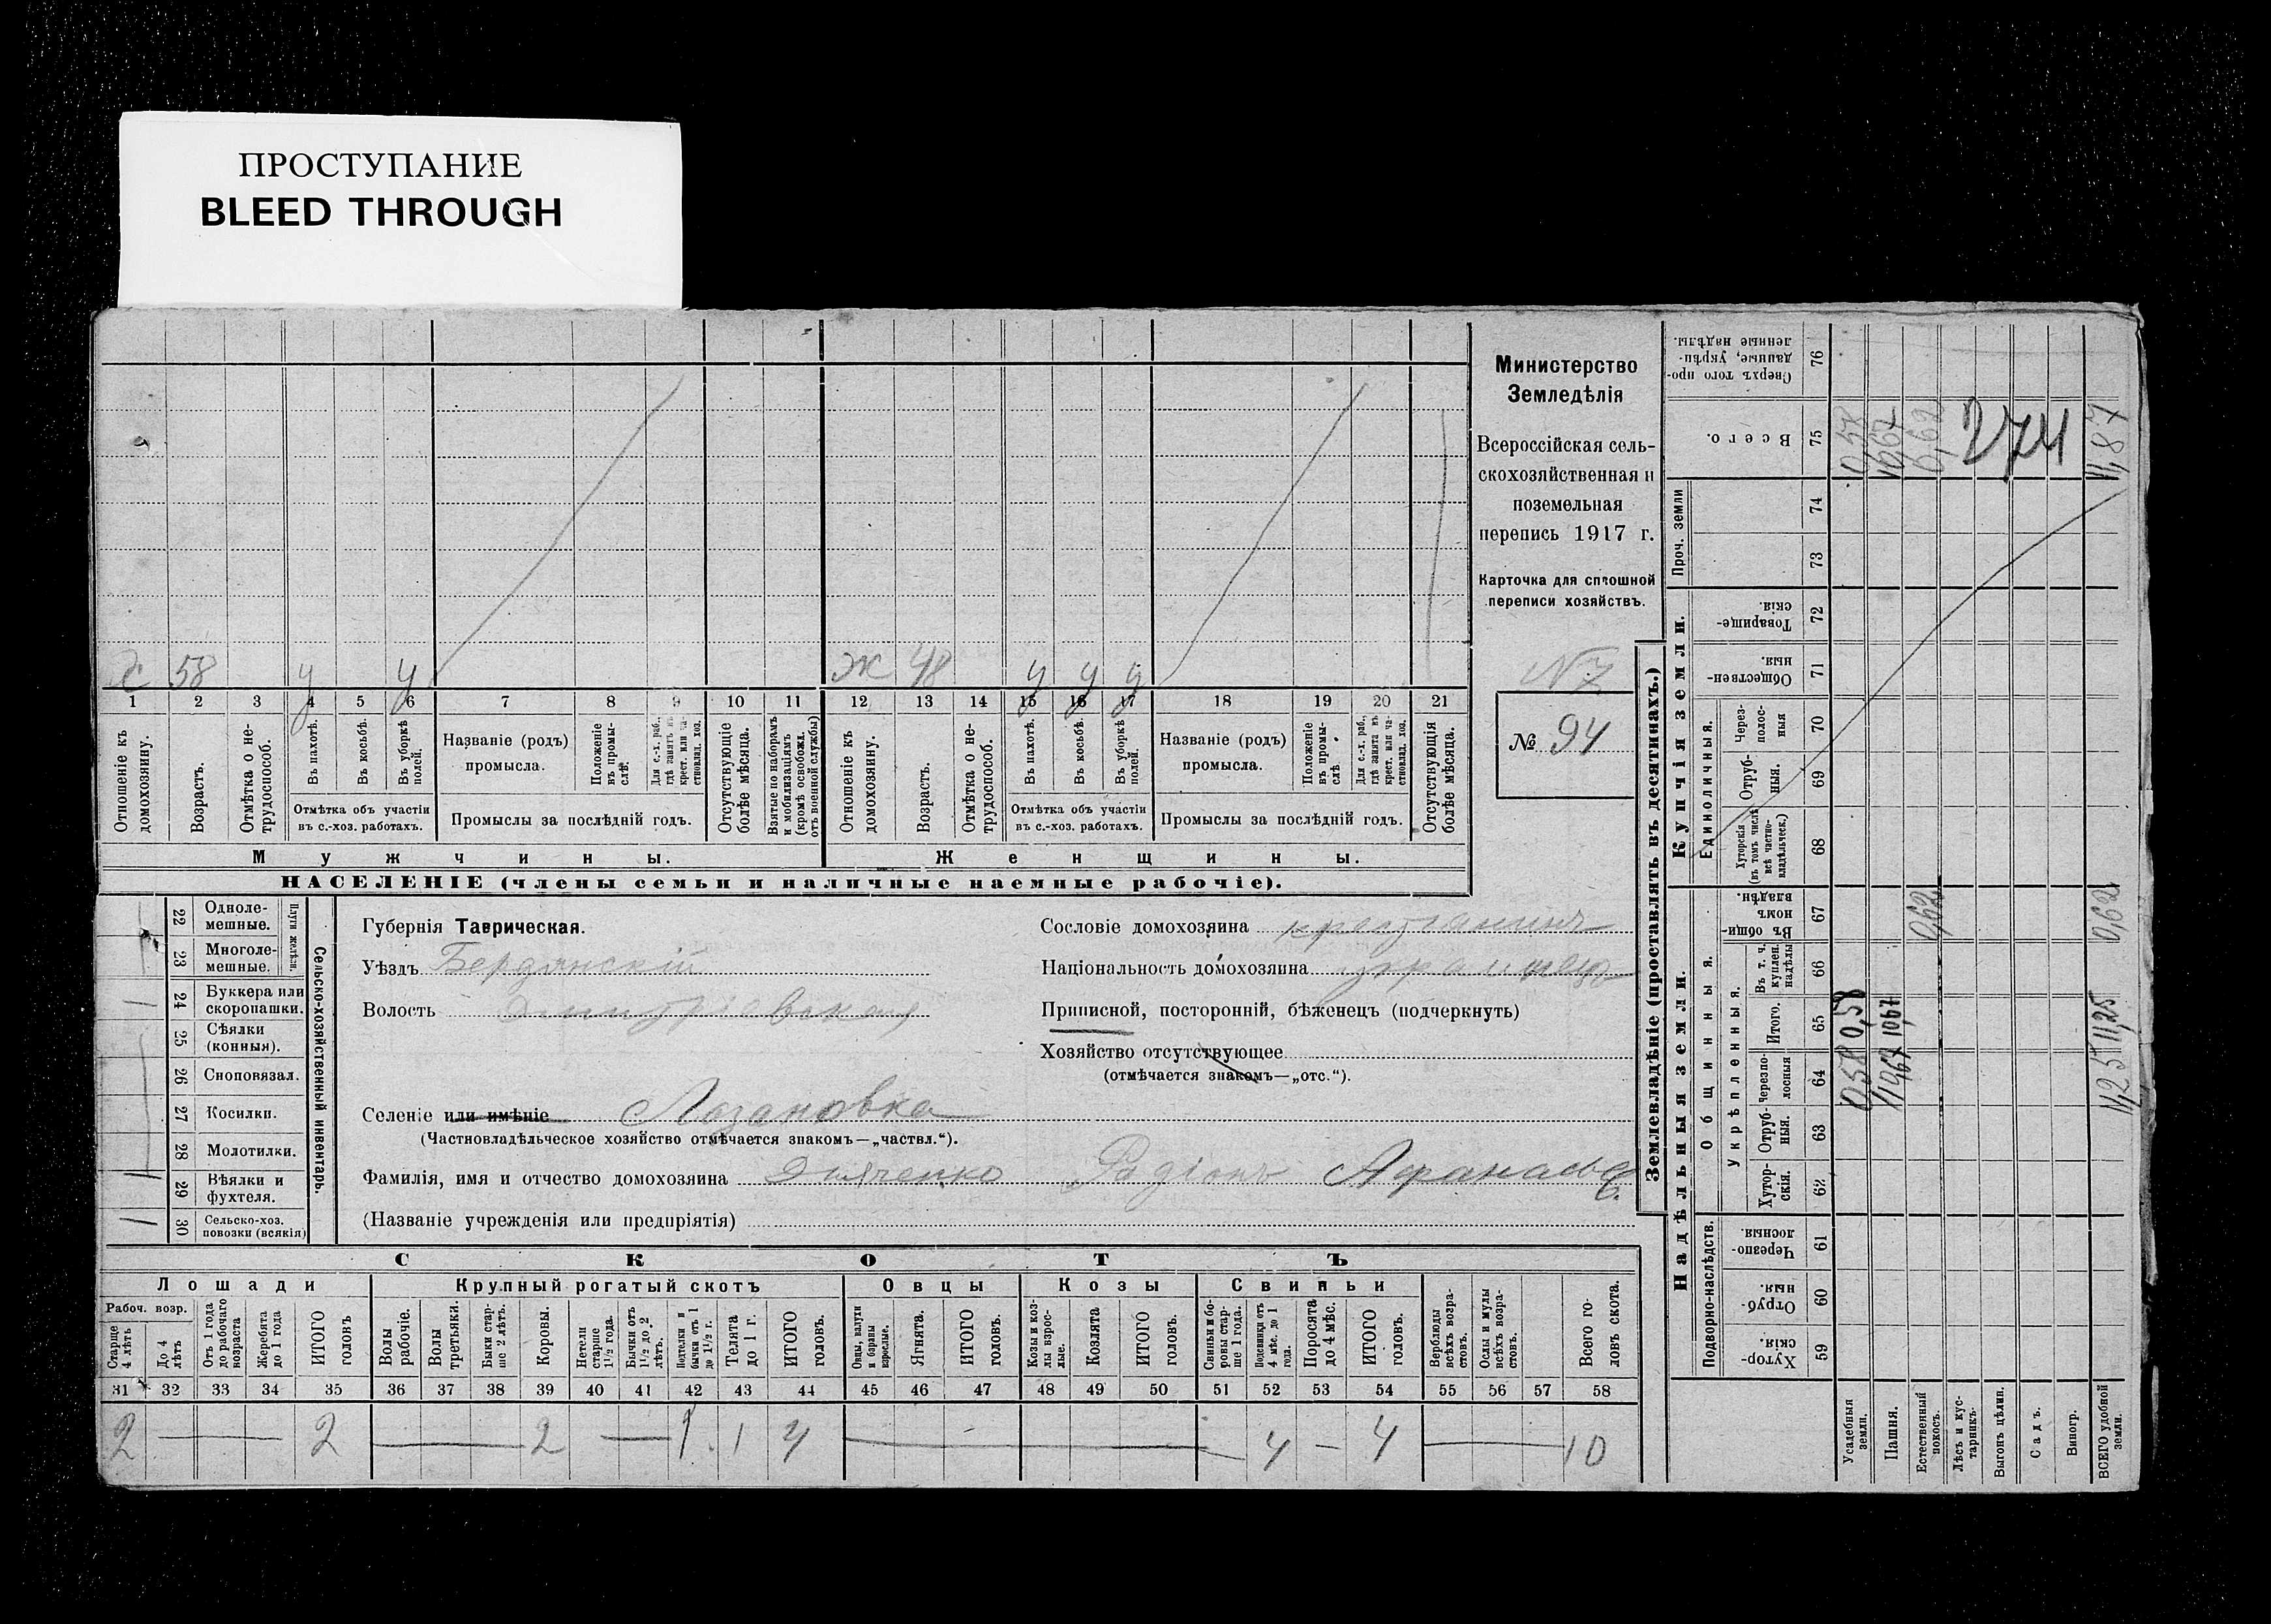 ПРОСТУПАНИЕ
BLEED THROUGH
Министерство
Земледѣлія
Всероссійская сель-
скохозяйственная и
поземельная
перепись 1917 г.
Карточка для сплошной
переписи хозяйствъ.
№ 94
58 у у Ж 48 у у у
1 2 3 4 5 6 7 8 9 10 11 12 13 14 15 16 17 18 19 20 21
Отношеніе къ домохозяину.
Возрастъ.
Отмѣтка о не-трудоспособ.
Въ пахотѣ.
Въ косьбѣ.
Въ уборкѣ полей.
Отмѣтка объ участіи
въ с.-хоз. работахъ.
Названіе (родъ)
промысла.
Положеніе въ промы-слѣ.
Для с.-х. раб., гдѣ занятъ въ крест. или ча-ствовлад. хоз.
Промыслы за послѣдній годъ.
Отсутствующіе болѣе мѣсяца.
Взятые по наборамъ и мобилизаціямъ (кромѣ освобожд. отъ военной службы)
Отношеніе къ домохозяину.
Возрастъ.
Отмѣтка о не-трудоспособ.
Въ пахотѣ.
Въ косьбѣ.
Въ уборкѣ полей.
Отмѣтка объ участіи
въ с.-хоз. работахъ.
Названіе (родъ)
промысла.
Положеніе въ промы-слѣ
Для с.-х. раб., гдѣ занята въ крест. или ча-ствовлад. хоз.
Промыслы за послѣдній годъ.
Отсутствующія болѣе мѣсяца.
Мужчины. Женщины.
НАСЕЛЕНІЕ (члены семьи и наличные наемные рабочіе).
Сельско-хозяйственный инвентарь.
Плуги желѣзн.
22 Одноле-мешные.
23 Многоле-мешные.
24 Буккера или скоропашки.
25 Сѣялки (конныя).
26 Сноповязал.
27 Косилки.
28 Молотилки.
29 Вѣялки и фухтеля.
30 Сельско-хоз. повозки (всякія)
Губернія Таврическая.
Уѣздъ Бердянскій
Волость
Селеніе или имѣніе Лозановка
(Частновладѣльческое хозяйство отмѣчается знакомъ—„частвл.“).
Фамилія, имя и отчество домохозяина Дьяченко Радіонъ Афанасье
(Названіе учрежденія или предпріятія)
Сословіе домохозяина крестьянинъ
Національность домохозяина украинец
Приписной, посторонній, бѣженецъ (подчеркнуть)
Хозяйство отсутствующее
(отмѣчается знакомъ—„отс.“).
СКОТЪ
Лошади Крупный рогатый скотъ Овцы Козы Свиньи
Рабоч. возр.
Старше 4 лѣтъ
До 4 лѣтъ
Отъ 1 года до рабочаго возраста
Жеребята до 1 года
ИТОГО головъ
Волы рабочіе.
Волы третьяки.
Быки стар-ше 2 лѣтъ.
Коровы.
Нетели старше 1½ года.
Бычки отъ 1½ до 2 лѣтъ.
Подтелки и бычки отъ 1 до 1½ г.
Телята до 1 г.
ИТОГО головъ.
Овцы, валухи и бараны взрослые.
Ягнята.
ИТОГО головъ.
Козы и коз-лы взрос-лые.
Козлята
ИТОГО головъ.
Свиньи и бо-ровы стар-ше 1 года.
Подсвинки отъ 4 мѣс. до 1 года.
Поросята до 4 мѣс.
ИТОГО головъ.
Верблюды всѣхъ возра-стовъ.
Ослы и мулы всѣхъ возра-стовъ.
Всего го-ловъ скота.
31 32 33 34 35 36 37 38 39 40 41 42 43 44 45 46 47 48 49 50 51 52 53 54 55 56 57 58
2 2 2 1 1 4 4 4 10
Землевладѣніе (проставлять въ десятинахъ.)
Надѣльныя земли. Купчія земли.
Проч. земли
Подворно-наслѣдств.
Общинныя.
Укрѣпленныя.
Единоличныя.
59 Хутор-скія
60 Отруб-ныя
61 Черезпо-лосныя
62 Хутор-скія.
63 Отруб-ныя.
64 Черезпо-лосныя
65 Итого.
66 Въ т. ч. куплен. надѣлы
67 Въ общин-номъ владѣн.
68 Хуторскія (въ томъ числѣ всѣ частно-владѣльческ.)
69 Отруб-ныя.
70 Через-полос-ныя
71 Обществен-ныя.
72 Товарище-скія.
73
74
75 Всего.
76 Сверхъ того про-данные, укрѣп-ленные надѣлы.
Усадебныя земли. 0,58 0,58 0,58
Пашня. 10,67 10,67
Естественный покосъ. 0,62 0,62
Лѣсъ и кус-тарникъ.
Выгонъ цѣлин.
Садъ.
Виногр.
ВСЕГО удобной земли. 11,25 11,25 0,62 11,87
274